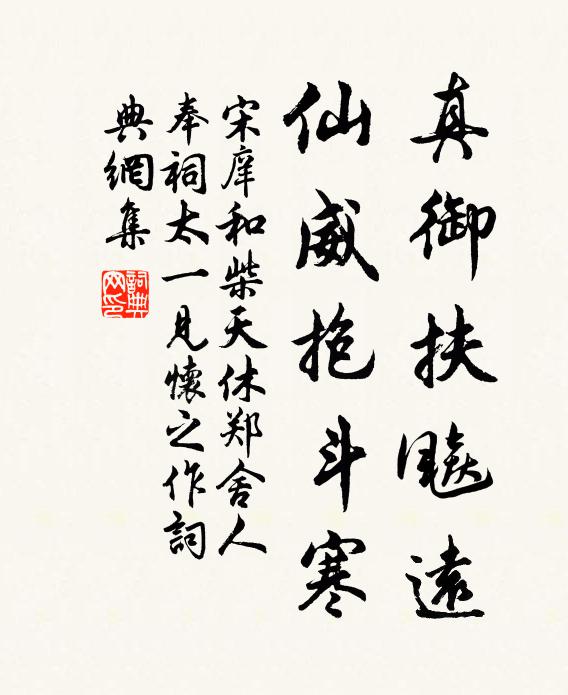 真御扶飈遠
仙威抱斗寒
宋庠和柴天休郑舍人
奉祠太一見懷之作詞
典網集
詞典
网印